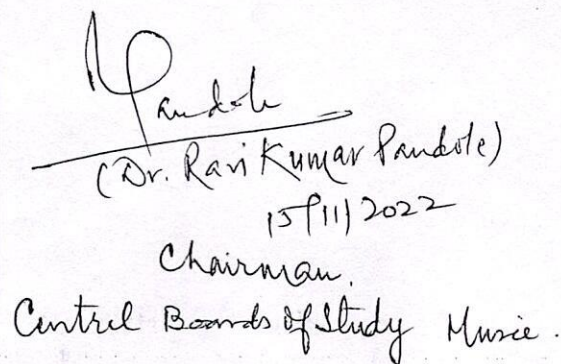 Pandole
(Dr. Ravi Kumar Pandole)
15/11/2022
Chairman.
Central Boards of Study Music.